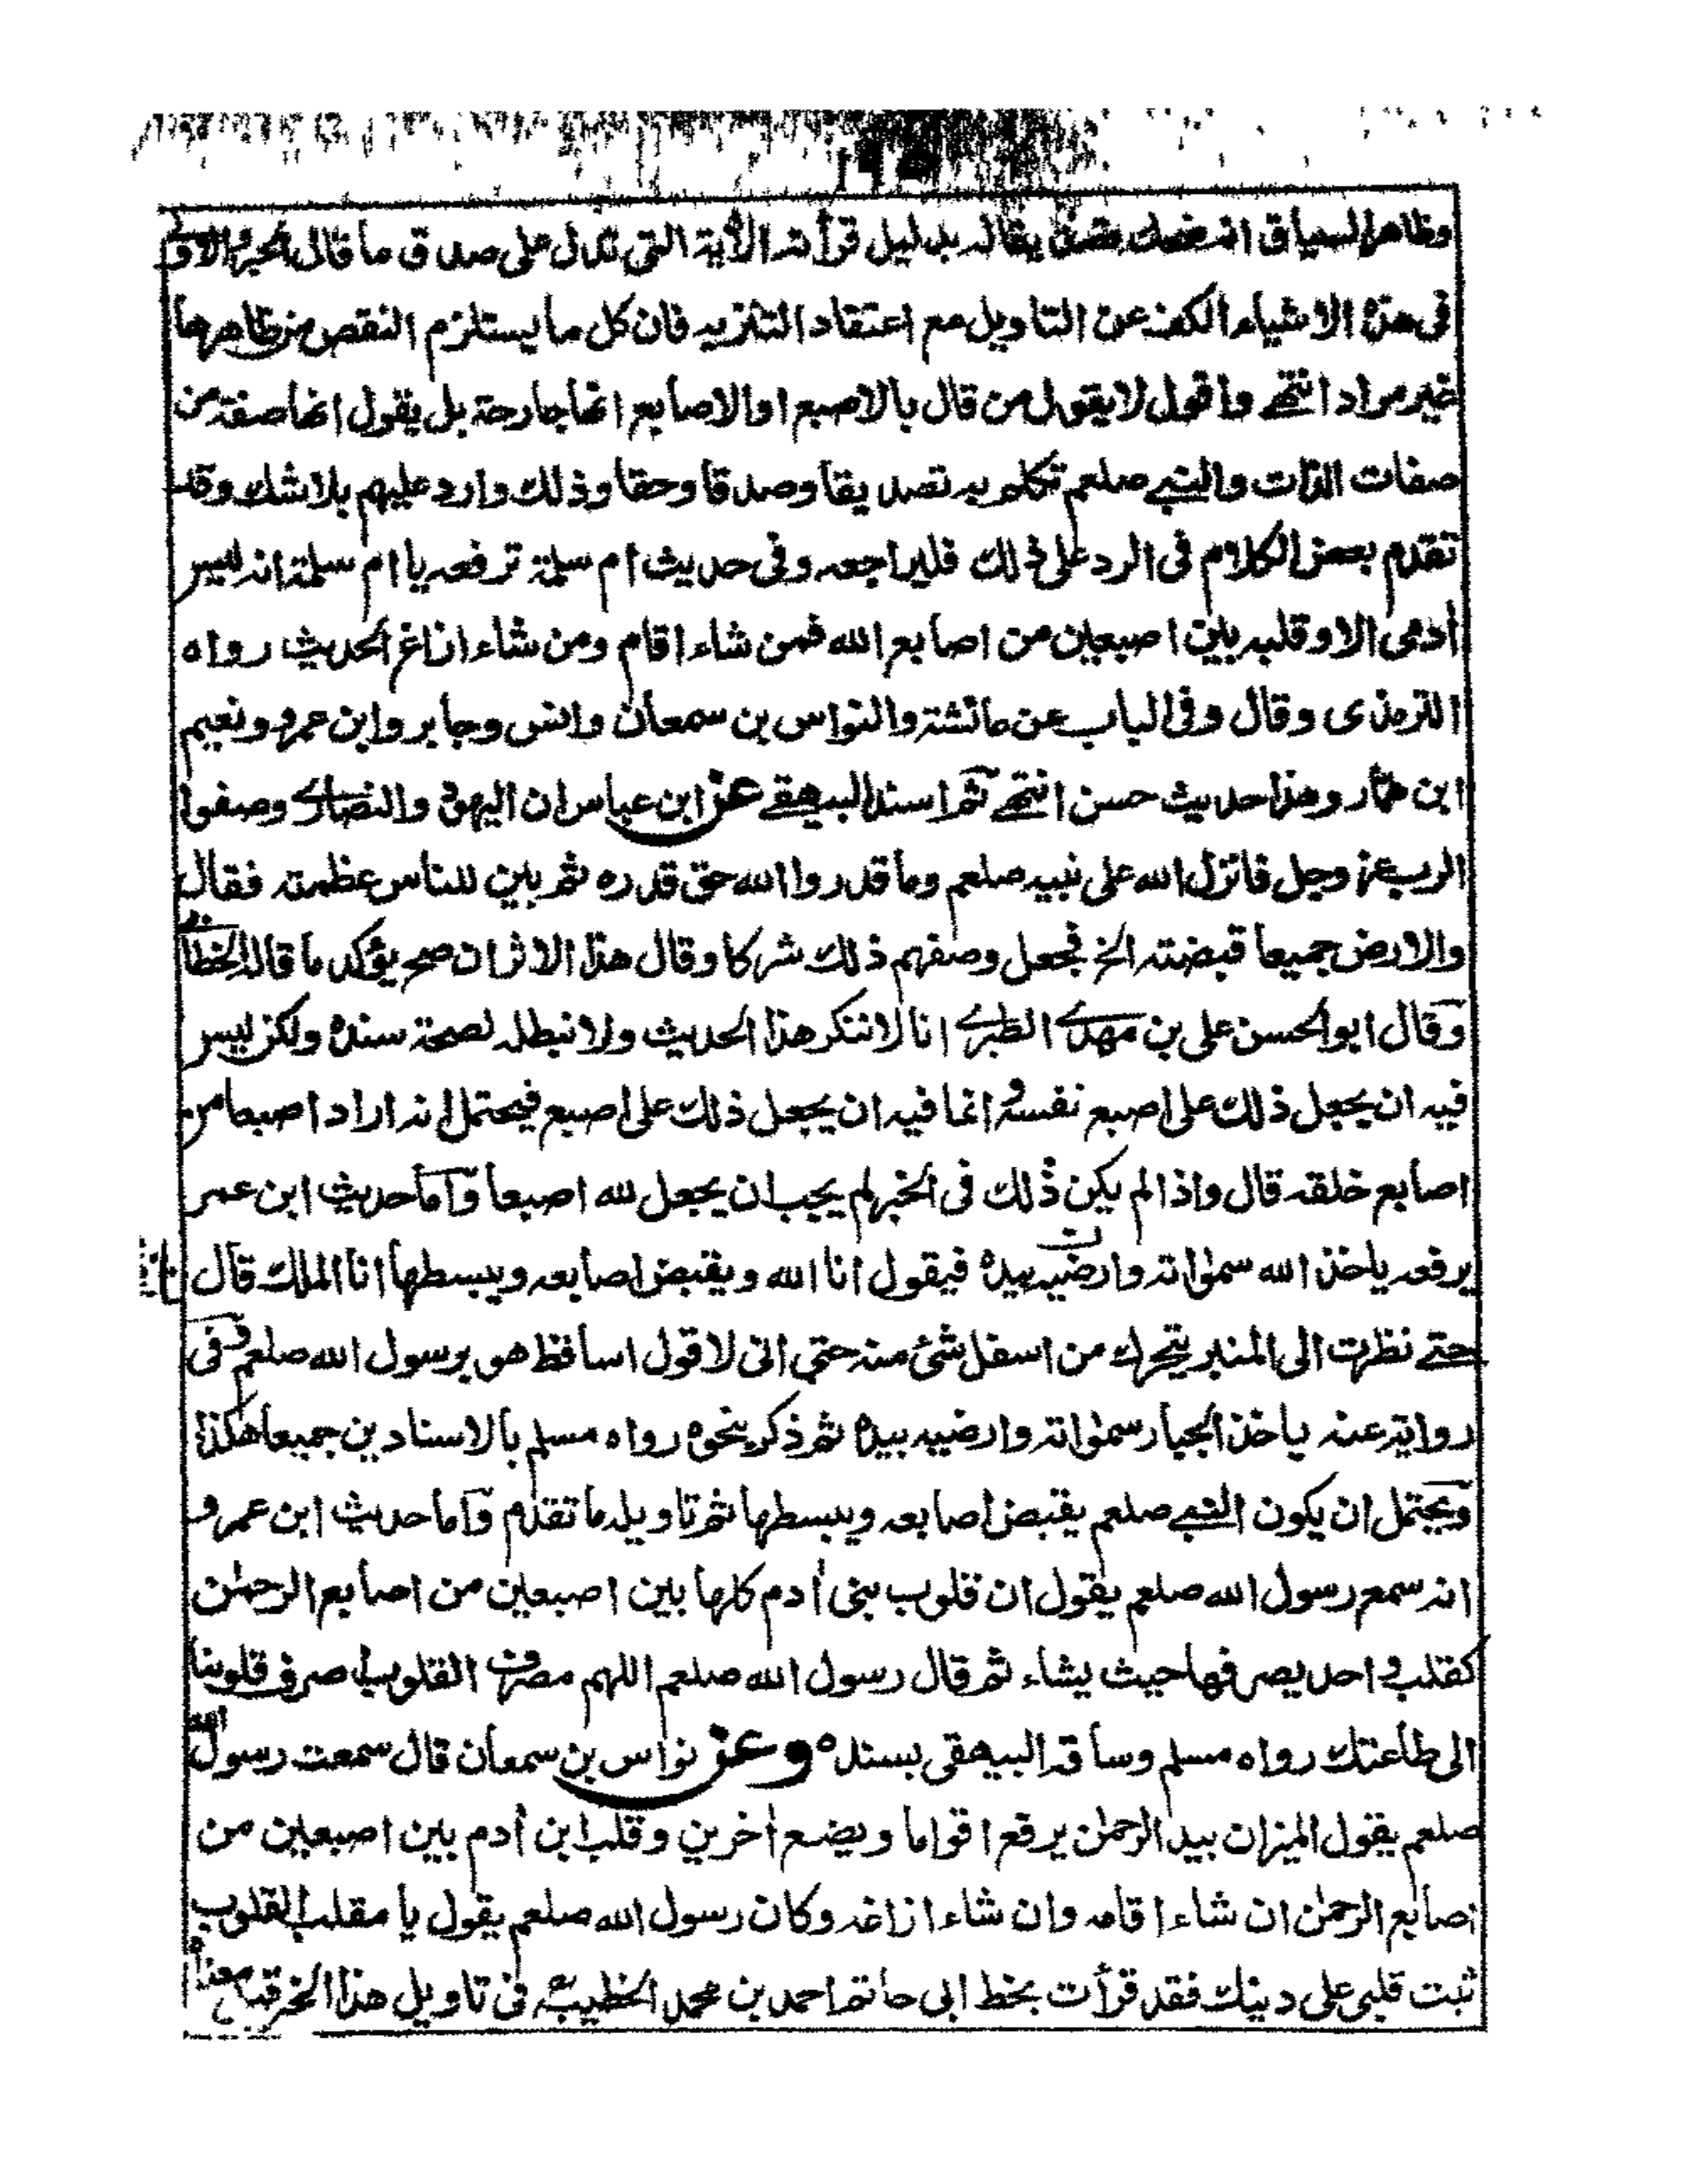 وظاهر السياق انه ضحك تصديقا له بدليل قرأته الأية التى تدل على صدق ما قال الحبر والاولى
فى هذه الاشياء الكف عن التاويل مع اعتقاد التنزيه فان كل ما يستلزم النقص من ظاهرها
غير مراد انتهى واقول لا يقول من قال بالاصبع او الاصابع انها جارحة بل يقول انها صفة من
صفات الذات والنبى صلعم تكلم به تصديقا وصدقا وحقا وذلك وارد عليهم بلا شك وقد
تقدم بعض الكلام فى الرد على ذلك فليراجعه وفى حديث ام سلمة ترفعه يا ام سلمة انه ليس
أدمى الا وقلبه بين اصبعين من اصابع الله فمن شاء اقام ومن شاء ازاغ الحديث رواه
الترمذى وقال وفى الباب عن عائشة والنواس بن سمعان وانس وجابر وابن عمرو ونعيم
ابن همار وهذا حديث حسن انتهى ثم اسند البيهقى عن ابن عباس ان اليهود والنصارى وصفوا
الرب عز وجل فانزل الله على نبيه صلعم وما قدروا الله حق قدره ثم بين للناس عظمته فقال
والارض جميعا قبضته الخ فجعل وصفهم ذلك شركا وقال هذا الاثر ان صح يؤكد ما قاله الخطابى
وقال ابو الحسن على بن مهدى الطبرى انا لا ننكر هذا الحديث ولا نبطله لصحة سنده ولكن ليس
فيه ان يجعل ذلك على اصبع نفسه وانما فيه ان يجعل ذلك على اصبع فيحتمل انه اراد اصبعا من
اصابع خلقه قال واذا لم يكن ذلك فى الخبر لم يجب ان يجعل لله اصبعا وأما حديث ابن عمر
يرفعه ياخذ الله سمواته وارضيه بيده فيقول انا الله ويقبض اصابعه ويبسطها انا الملك قال
حتى نظرت الى المنبر يتحرك من اسفل شئ منه حتى انى لاقول اساقط هو برسول الله صلعم وفى
رواية عنه ياخذ الجبار سمواته وارضيه بيده ثم ذكر نحوه رواه مسلم بالاسنادين جميعا هكذا
ويحتمل ان يكون النبى صلعم يقبض اصابعه ويبسطها ثم تاويله ما تقدم وأما حديث ابن عمرو
انه سمع رسول الله صلعم يقول ان قلوب بنى أدم كلها بين اصبعين من اصابع الرحمن
كقلب واحد يصرفها حيث يشاء ثم قال رسول الله صلعم اللهم مصرف القلوب صرف قلوبنا
الى طاعتك رواه مسلم وساقه البيهقى بسنده وعن نواس بن سمعان قال سمعت رسول الله
صلعم يقول الميزان بيد الرحمن يرفع اقواما ويضع أخرين وقلب ابن أدم بين اصبعين من
اصابع الرحمن ان شاء اقامه وان شاء ازاغه وكان رسول الله صلعم يقول يا مقلب القلوب
ثبت قلبى على دينك فقد قرأت بخط ابى حاتم احمد بن محمد الخطيب فى تاويل هذا الخبر قيل معناه